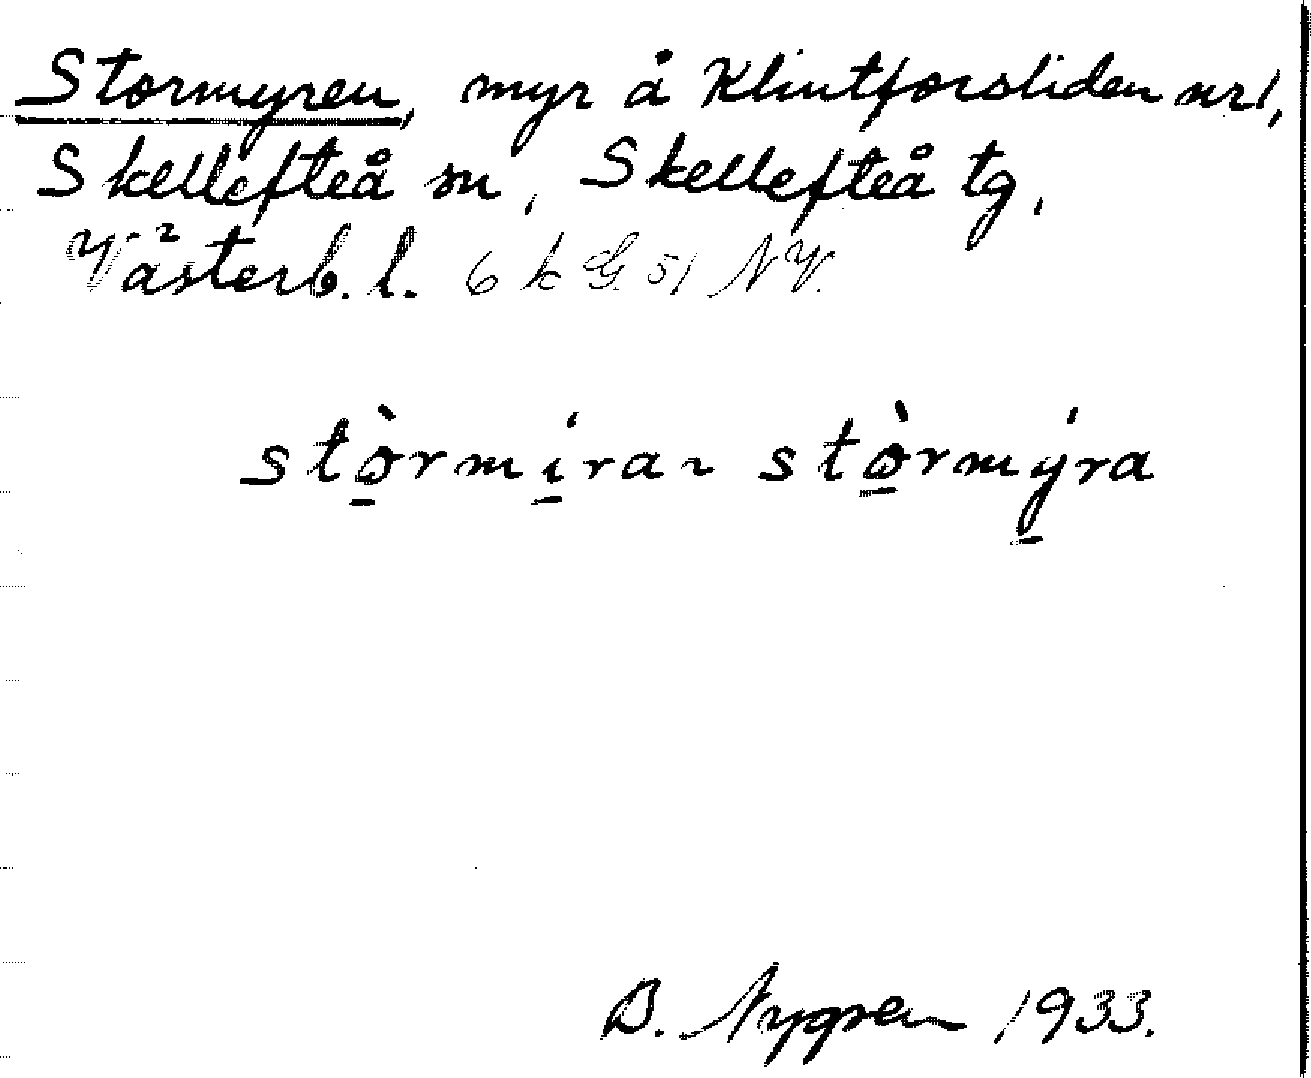 Stormyren, myr å Klintforsliden nr 1,
Skellefteå sn, Skellefteå tg,
Västerb. l. 6 k G. 51 NV.
stò̱rmí̱ra ~ stò̱rmý̱ra
B. Nygren 1933.